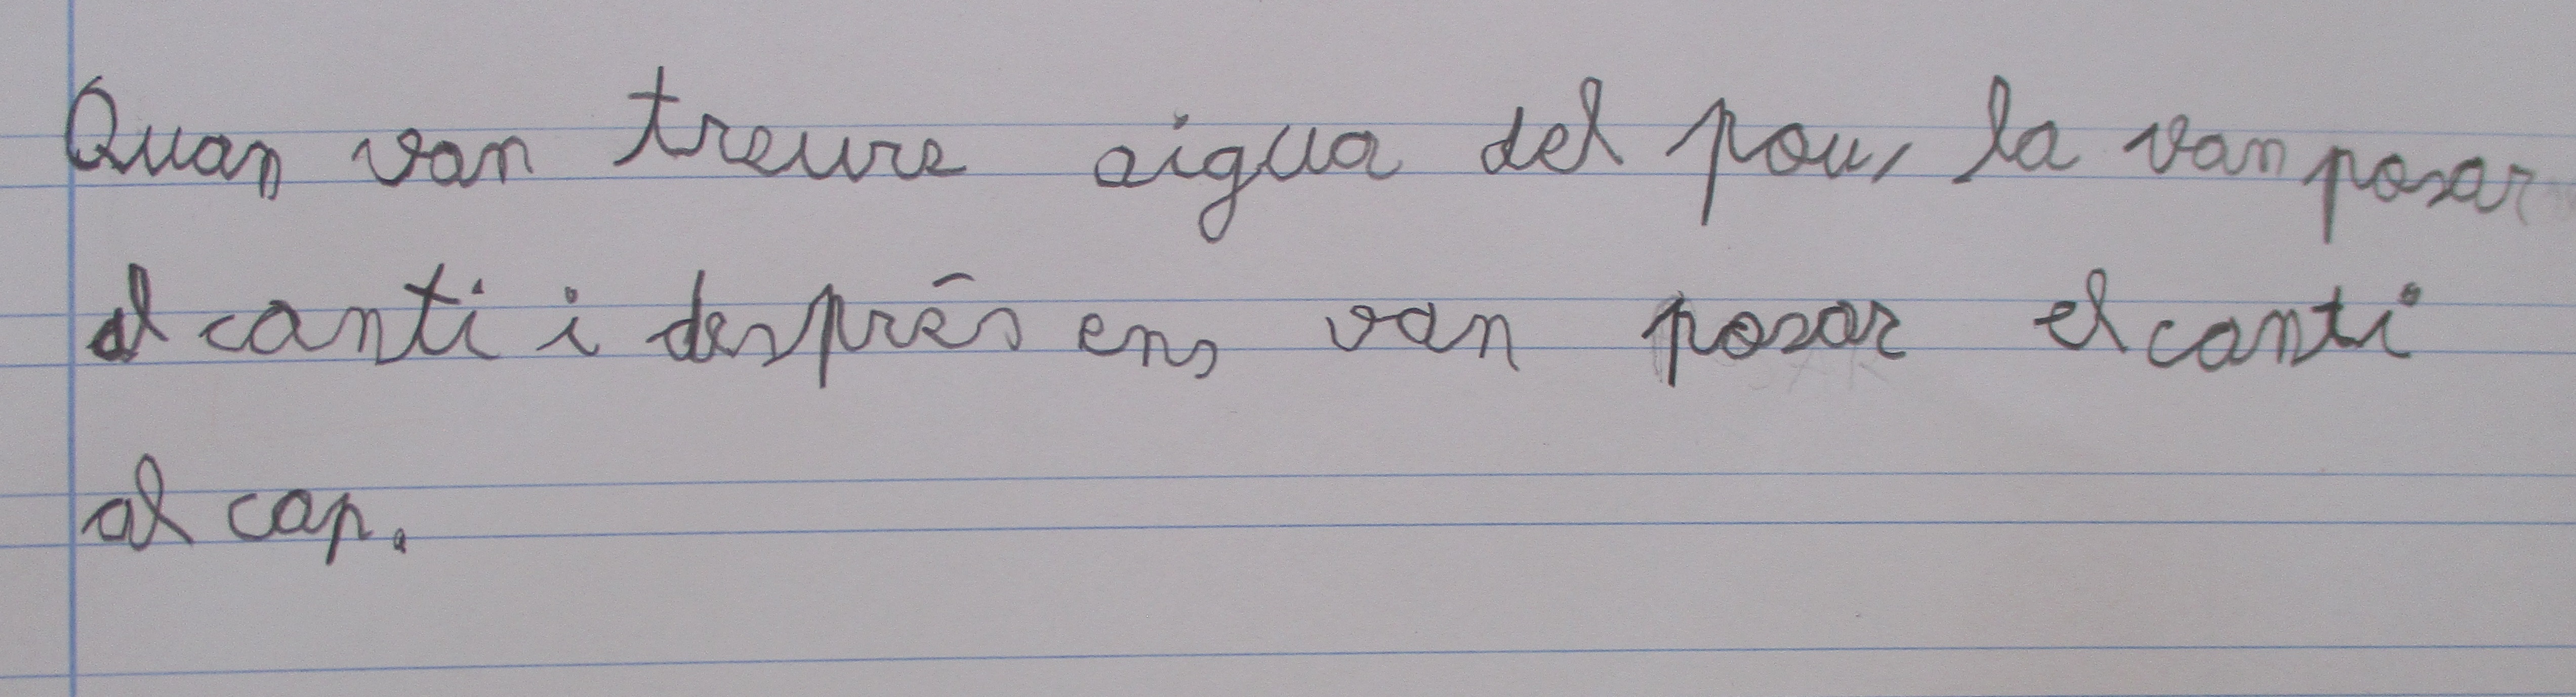 Quan van treure aigua del pou, la van posar
al canti i desprēs ens van posar el canti
al cap.